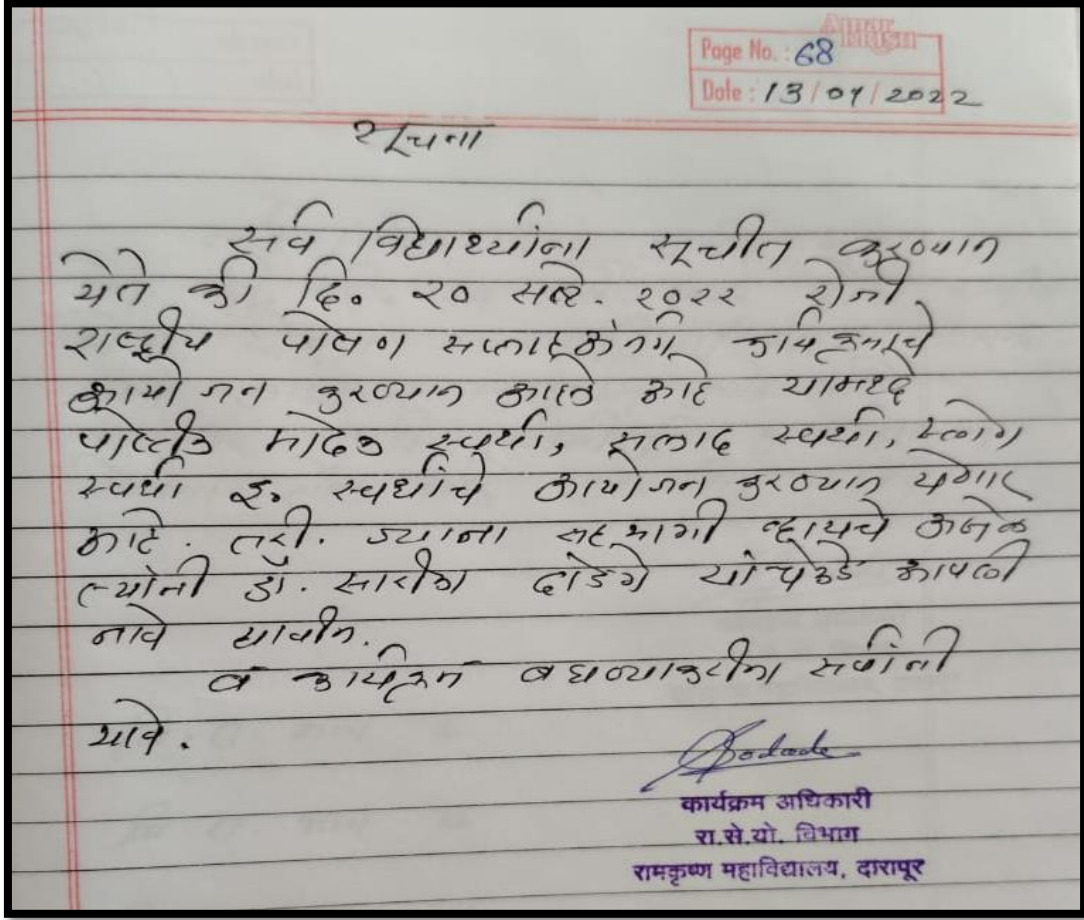 Page No. : 68
Date : 13/09/2022
सूचना
सर्व विद्यार्थ्यांना सूचीत करण्यात
येते की दि. २० सप्टे. २०२२ रोजी
राष्ट्रीय पोषण कार्यक्रमाचे
आयोजन करण्यात आले आहे यामध्ये
पौष्टीक मोदक स्पर्धा, सलाद स्पर्धा,
स्पर्धा इ. स्पर्धांचे आयोजन करण्यात येणार
आहे. तरी. ज्यांना सहभागी व्हायचे असेल
त्यांनी डॉ. यांचेकडे आपली
नावे द्यावीत.
व कार्यक्रम बघण्याकरीता सर्वांनी
यावे.
कार्यक्रम अधिकारी
रा.से.यो. विभाग
रामकृष्ण महाविद्यालय, दारापूर